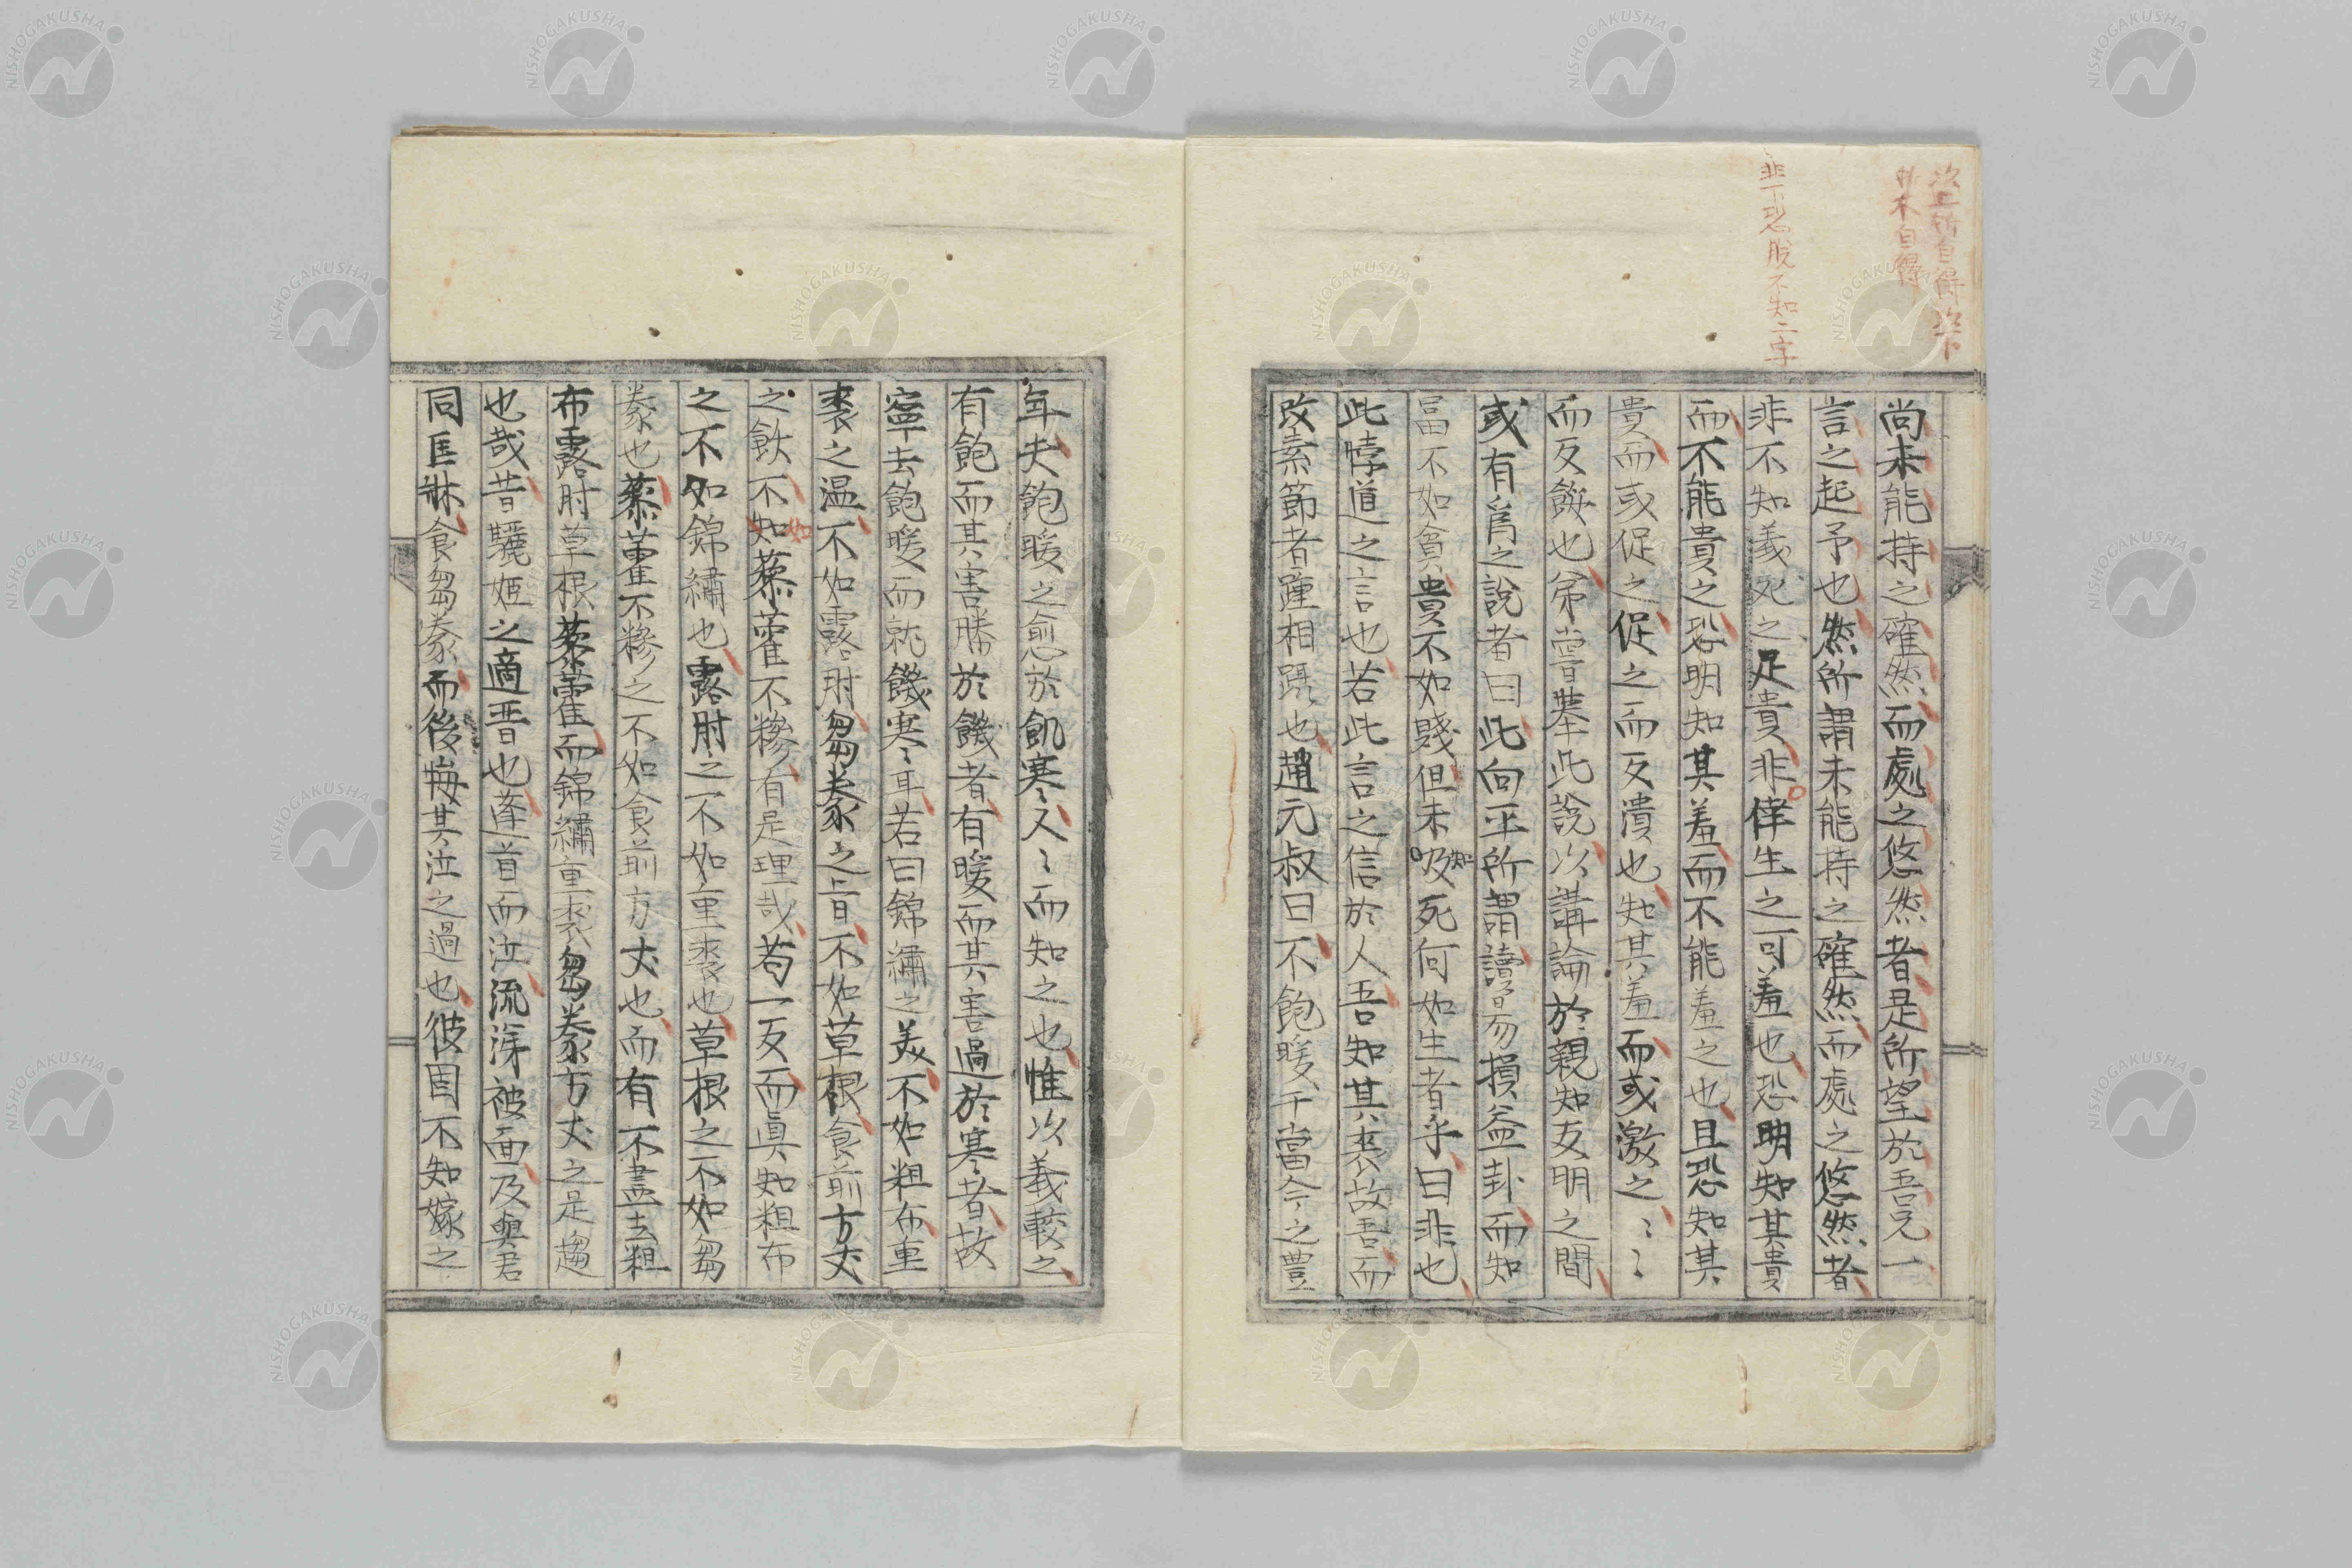 尚未能持之確然而處之悠然者是所望於吾兄一
言之起予也然所謂未能持之確然而處之悠然者
非不知義死之足貴非倖生之可羞也恐明知其貴
而不能貴之恐明知其羞而不能羞之也且恐知其
貴而或促之促之而反潰也知其羞而或激之〻〻
而反餠也弟嘗擧此說以講論於親知友朋之間
或有爲之說者曰此向平所謂讀易損益卦而知
富不如貧貴不如賤但未吸知死何如生者乎曰非也
此悖道之言也若此言之信於人吾知其喪故吾而
改素節者踵相躡也趙元叔曰不飽暖于當今之豐
年夫飽暖之愈於飢寒人〻而知之也惟以義較之
有飽而其害勝於饑者有暖而其害過於寒者故
寧去飽暖而就饑寒〻耳若曰錦繡之美不如粗布重
裘之溫不如露肘芻豢之旨不如草根食前方丈
之飲不知如藜藿不糝有是理哉苟一反而眞知粗布
之不如錦繡也露肘之不如重裘也草根之不如芻
豢也藜藿不糝之不如食前方丈也而有不盡去粗
布露肘草根藜藿而錦繡重裘芻豢方丈之是趨
也哉昔驪姬之適晋也蓬首而泣流涕被面及與君
同匡牀食芻豢而後悔其泣之過也彼固不知嫁之
次上所自得次下
外本自得
非下恐脫不知二字
NISHOGAKUSHA